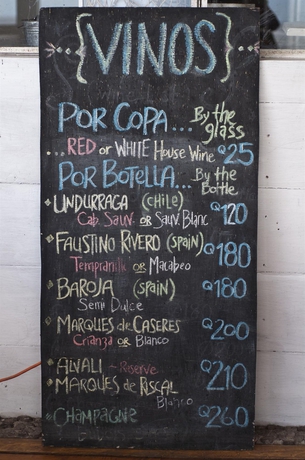 {VINOS}
POR COPA... By the glass
...RED or WHITE House Wine Q25
POR BOTELLA... By the Bottle
UNDURRAGA (CHILE) Q120
Cab Sauv. OR Sauv Blanc
FAUSTINO RIVERO (SPAIN) Q180
Tempranillo OR Macabeo
BAROJA (SPAIN) Q180
Semi Dulce
MARQUES de CASERES Q200
Crianza OR Blanco
AIVALI ~ Reserve Q210
MARQUES de RISCAL
Blanco
CHAMPAGNE Q260